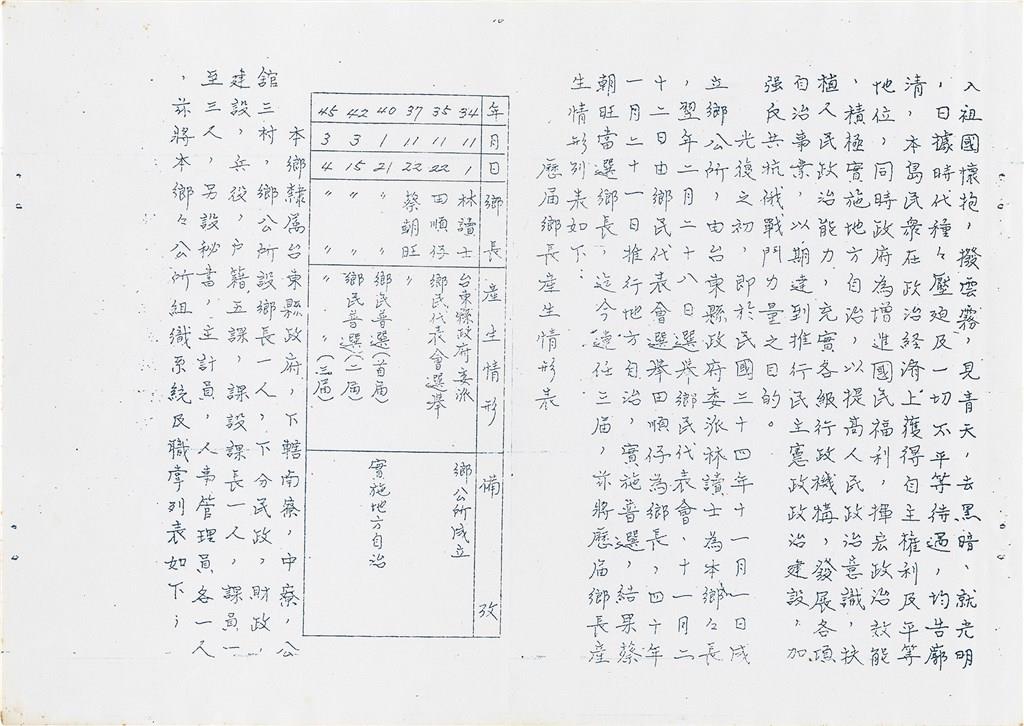 入祖國懷抱,撥雲霧,見青天,去黑暗、就光明
,日據時代種々壓廹及一切不平等待遇,均告廓
清,本島民衆在政治経濟上獲得自主權利及平等
地位,同時政府為增進國民福利,揮宏政治效能
,積極實施地方自治,以提高人民政治意識,扶
植人民政治能力,充實各級行政機構,發展各項
自治事業,以期達到推行民主憲政政治建設,加
强反共抗俄戰鬥力量之目的。
光復之初,即於民國三十四年十一月一日成
立鄉公所,由台東縣政府委派林讀士為本鄉々長
,翌年二月二十八日選举鄉民代表會、十一月二
十二日由鄉民代表會選举田順仔為鄉長,四十年
一月二十一日推行地方自治,實施普選,結果蔡
朝旺當選鄉長,迄今連任三届,茲將歷届鄉長產
生情形列表如下:
歷届鄉長產生情形表
年 月 日 鄉長 產生情形 備攷
34 11 1 林讀士 台東縣政府委派 鄉公所成立
35 11 22 田順仔 鄉民代表會選舉
37 11 22 蔡朝旺 〃
40 1 21 〃 〃 鄉民普選(首届) 實施地方自治
42 3 15 〃 〃 鄉民普選(二届)
45 3 4 〃 〃 〃 〃(三届)
本鄉隸属台東縣政府,下轄南寮,中寮,公
舘三村,鄉公所設鄉長一人,下分民政,財政,
建設,兵役,户籍五課,課設課長一人,課員一
至三人,另設秘書,主計員,人事管理員各一人
,茲將本鄉々公所組織系統及職掌列表如下;